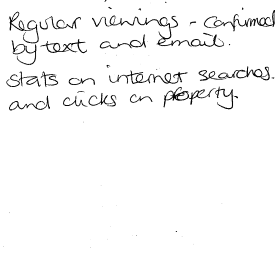 Regular viewings - Confirmed
by text and email.
Stats on internet searches.
and clicks on property.